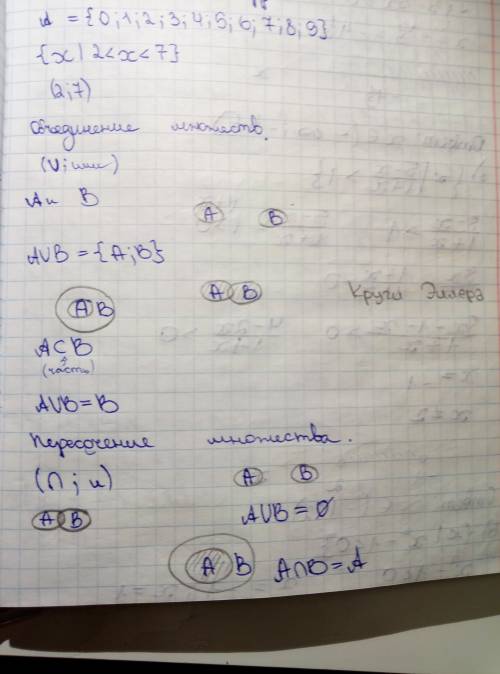 A = {0;1;2;3;4;5;6;7;8;9}
{x | 2<x<7}
(2;7)
Объединение множеств.
(∪; или)
A и B
A B
A∪B = {A;B}
A B
A B
Круги Эйлера
A⊂B
(часть)
A∪B=B
Пересечение множества.
(∩; и)
A B
A B
A∪B=∅
A B
A∩B=A